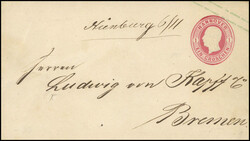 HANNOVER
EIN GROSCHEN
Nienburg 6/11
Herren
Ludwig von Kapff &
Bremen